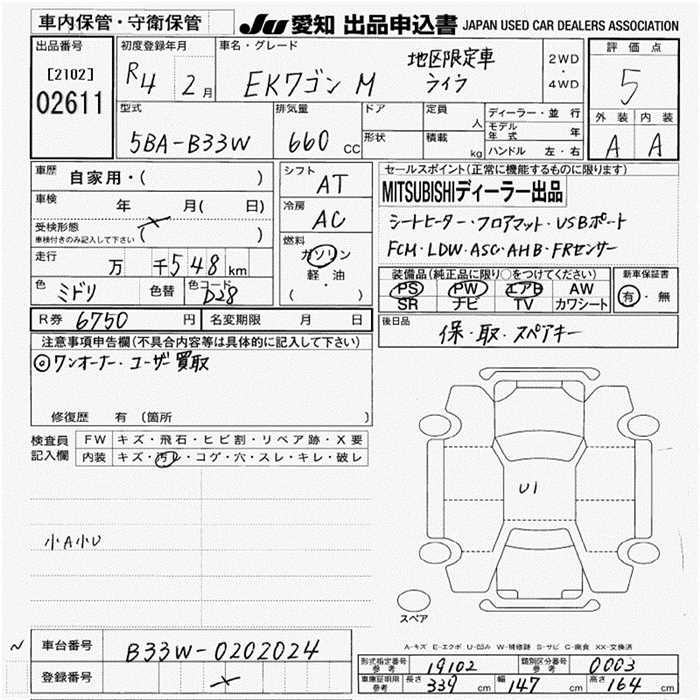 車内保管・守衛保管
JU 愛知 出品申込書 JAPAN USED CAR DEALERS ASSOCIATION
出品番号
[2102]
02611
初度登録年月
R4 2月
車名・グレード
EKワゴン M
地区限定車
ライラ
2WD
・
4WD
評価点
5
外装 内装
A A
型式
5BA-B33W
排気量
660 CC
ドア
形状
定員 人
積載 kg
ディーラー・並行
モデル年式 年
ハンドル 左・右
車歴 自家用・( )
車検 年 月( 日)
受検形態
車検付きのみ記入して下さい
( )
走行 万 千548km
色 ミドリ 色替 色コード D28
シフト
AT
冷房
AC
燃料
ガソリン
軽・油
( )
セールスポイント(正常に機能するものに限ります)
MITSUBISHIディーラー出品
シートヒーター・フロアマット・USBポート
FCM・LDW・ASC・AHB・FRセンサー
装備品(純正品に限り○をつけてください)
PS PW エアB AW
SR ナビ TV カワシート
新車保証書
有・無
R券 6750 円 名変期限 月 日
後日品
保・取・スペアキー
注意事項申告欄(不具合内容等は具体的に記入して下さい)
◎ワンオーナー・ユーザー買取
修復歴 有 (箇所 )
検査員
記入欄
FW キズ・飛石・ヒビ割・リペア跡・X要
内装 キズ・汚レ・コゲ・穴・スレ・キレ・破レ
小A小U
U1
スペア
A-キズ E-エクボ U-凹み W-補修跡 S-サビ C-腐食 XX-交換済
〜 車台番号 B33W-0202024
登録番号
型式指定番号
参考
19102
類別区分番号
参考
0003
車庫証明用
参考
長さ 339 cm 幅 147 cm 高さ 164 cm